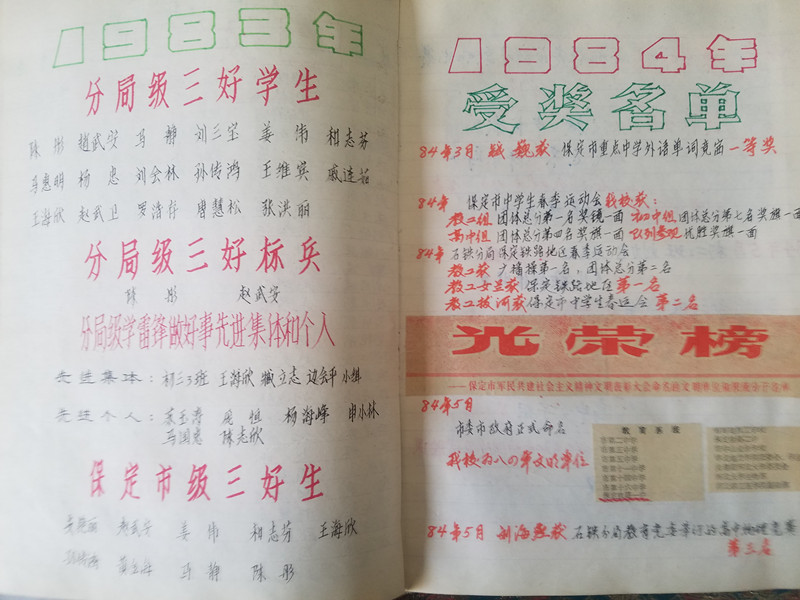 1983年
分局级三好学生
陈彤 赵武安 马静 刘三宝 姜伟 相志芬
马惠明 杨忠 刘会林 孙传鸿 王维宾 戚连茹
王海欣 赵武卫 罗浩存 唐慧松 张洪丽
分局级三好标兵
陈彤 赵武安
分局级学雷锋做好事先进集体和个人
先进集体：初二3班 王海欣 臧立志 边会平 小组
先进个人： 恒 杨海峰 申小林
马国忠 陈志欣
保定市级三好生
赵武安 姜伟 相志芬 王海欣
马静 陈彤
1984年
受奖名单
84年3月 魏获 保定市重点中学外语单词竞赛一等奖
84年 保定市中学生春季运动会我校获：
教工组 团体总分第一名奖镜一面 初中组 团体总分第七名奖旗一面
高中组 团体总分第四名奖旗一面 队列参观 优胜奖旗一面
84年 石铁分局保定铁路地区春季运动会
教工获 广播操第一名，团体总分第二名
教工女篮获 保定铁路地区第一名
教工拔河获 保定市中学生春运会 第二名
光荣榜
——保定市军民共建社会主义精神文明表彰大会命名的文明单位
84年5月
市委市政府正式命名
我校为八四年文明单位
教育系统
市第二中学
市第三中学
市第五中学
市第十一中学
84年5月 刘海 获 石铁分局教育党委举行的高中物理竞赛
第三名